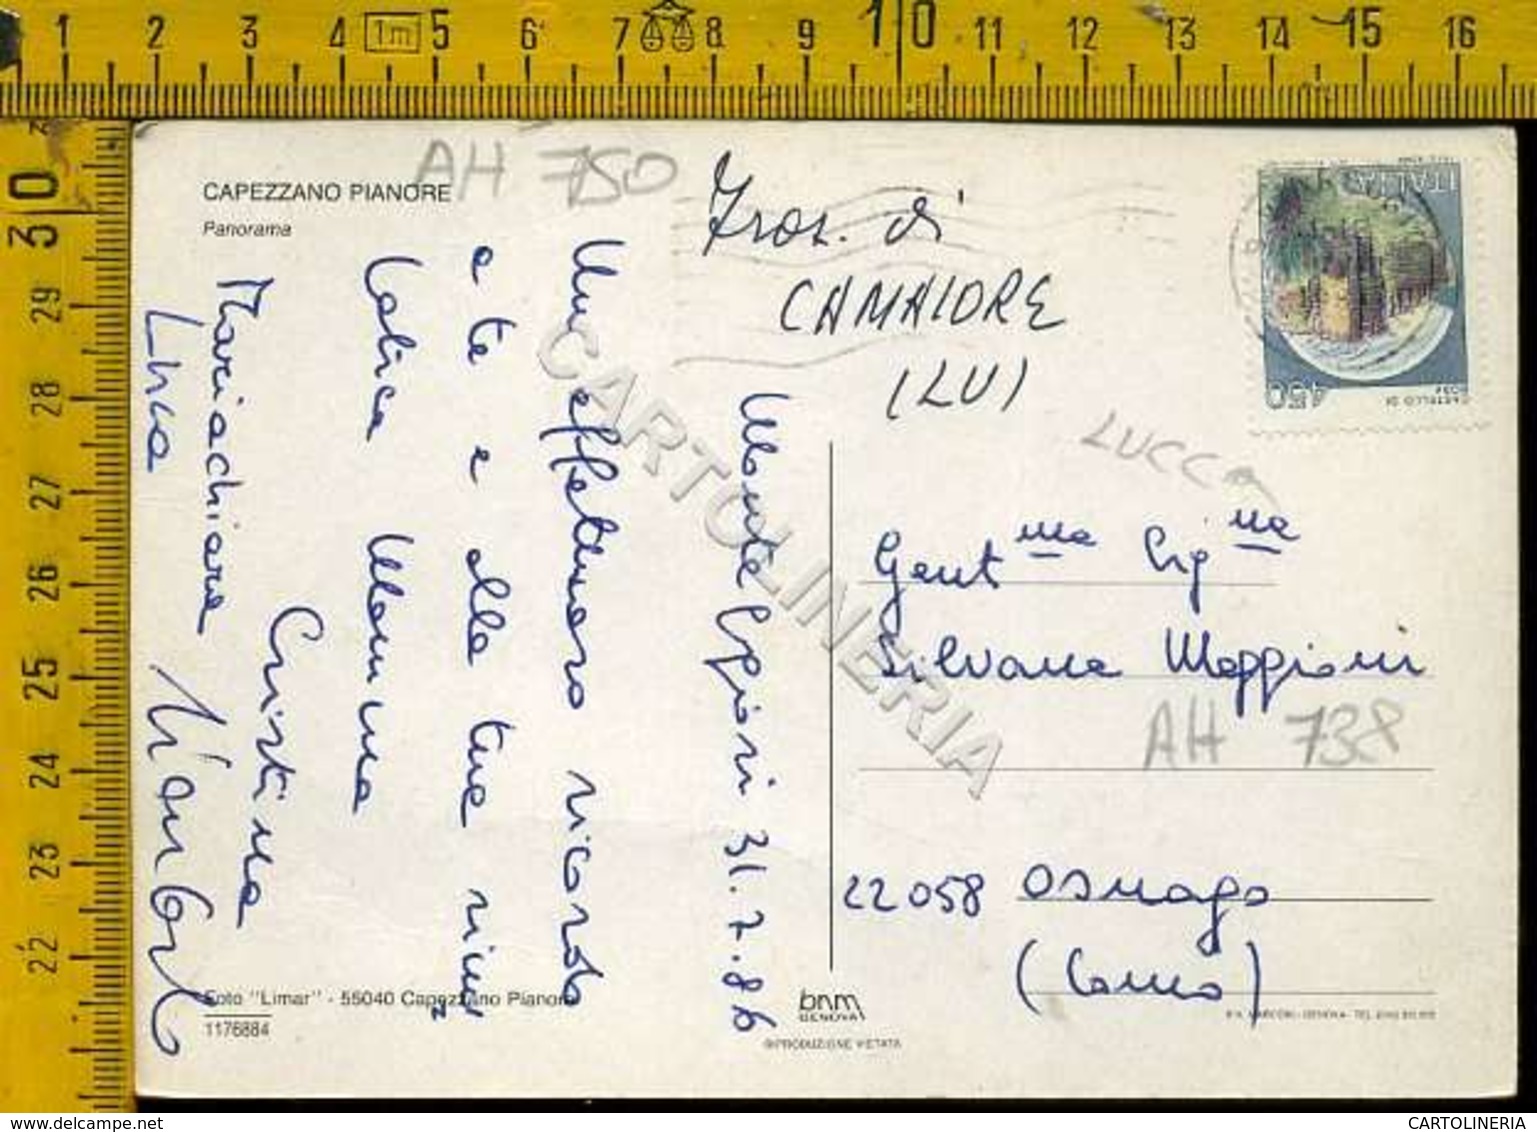 1 2 3 4 1m 5 6 7 8 9 10 11 12 13 14 15 16
30 29 28 27 26 25 24 23 22
CAPEZZANO PIANORE
Panorama
AH 750
Fraz. di
CAMAIORE
(LU)
ITALIA
450
CASTELLO DI
LUCCA
Monteggiori 31.7.86
Un affettuoso ricordo
a te e alla tua
Mamma
Cristina
Mariachiara
Luca
Gent.ma Sig.na
Silvana Maggioni
AH 738
22058 Osnago
(Como)
Foto "Limar" - 55040 Capezzano Pianore
1176884
bnm
GENOVA
RIPRODUZIONE VIETATA
CARTOLINERIA
CARTOLINERIA